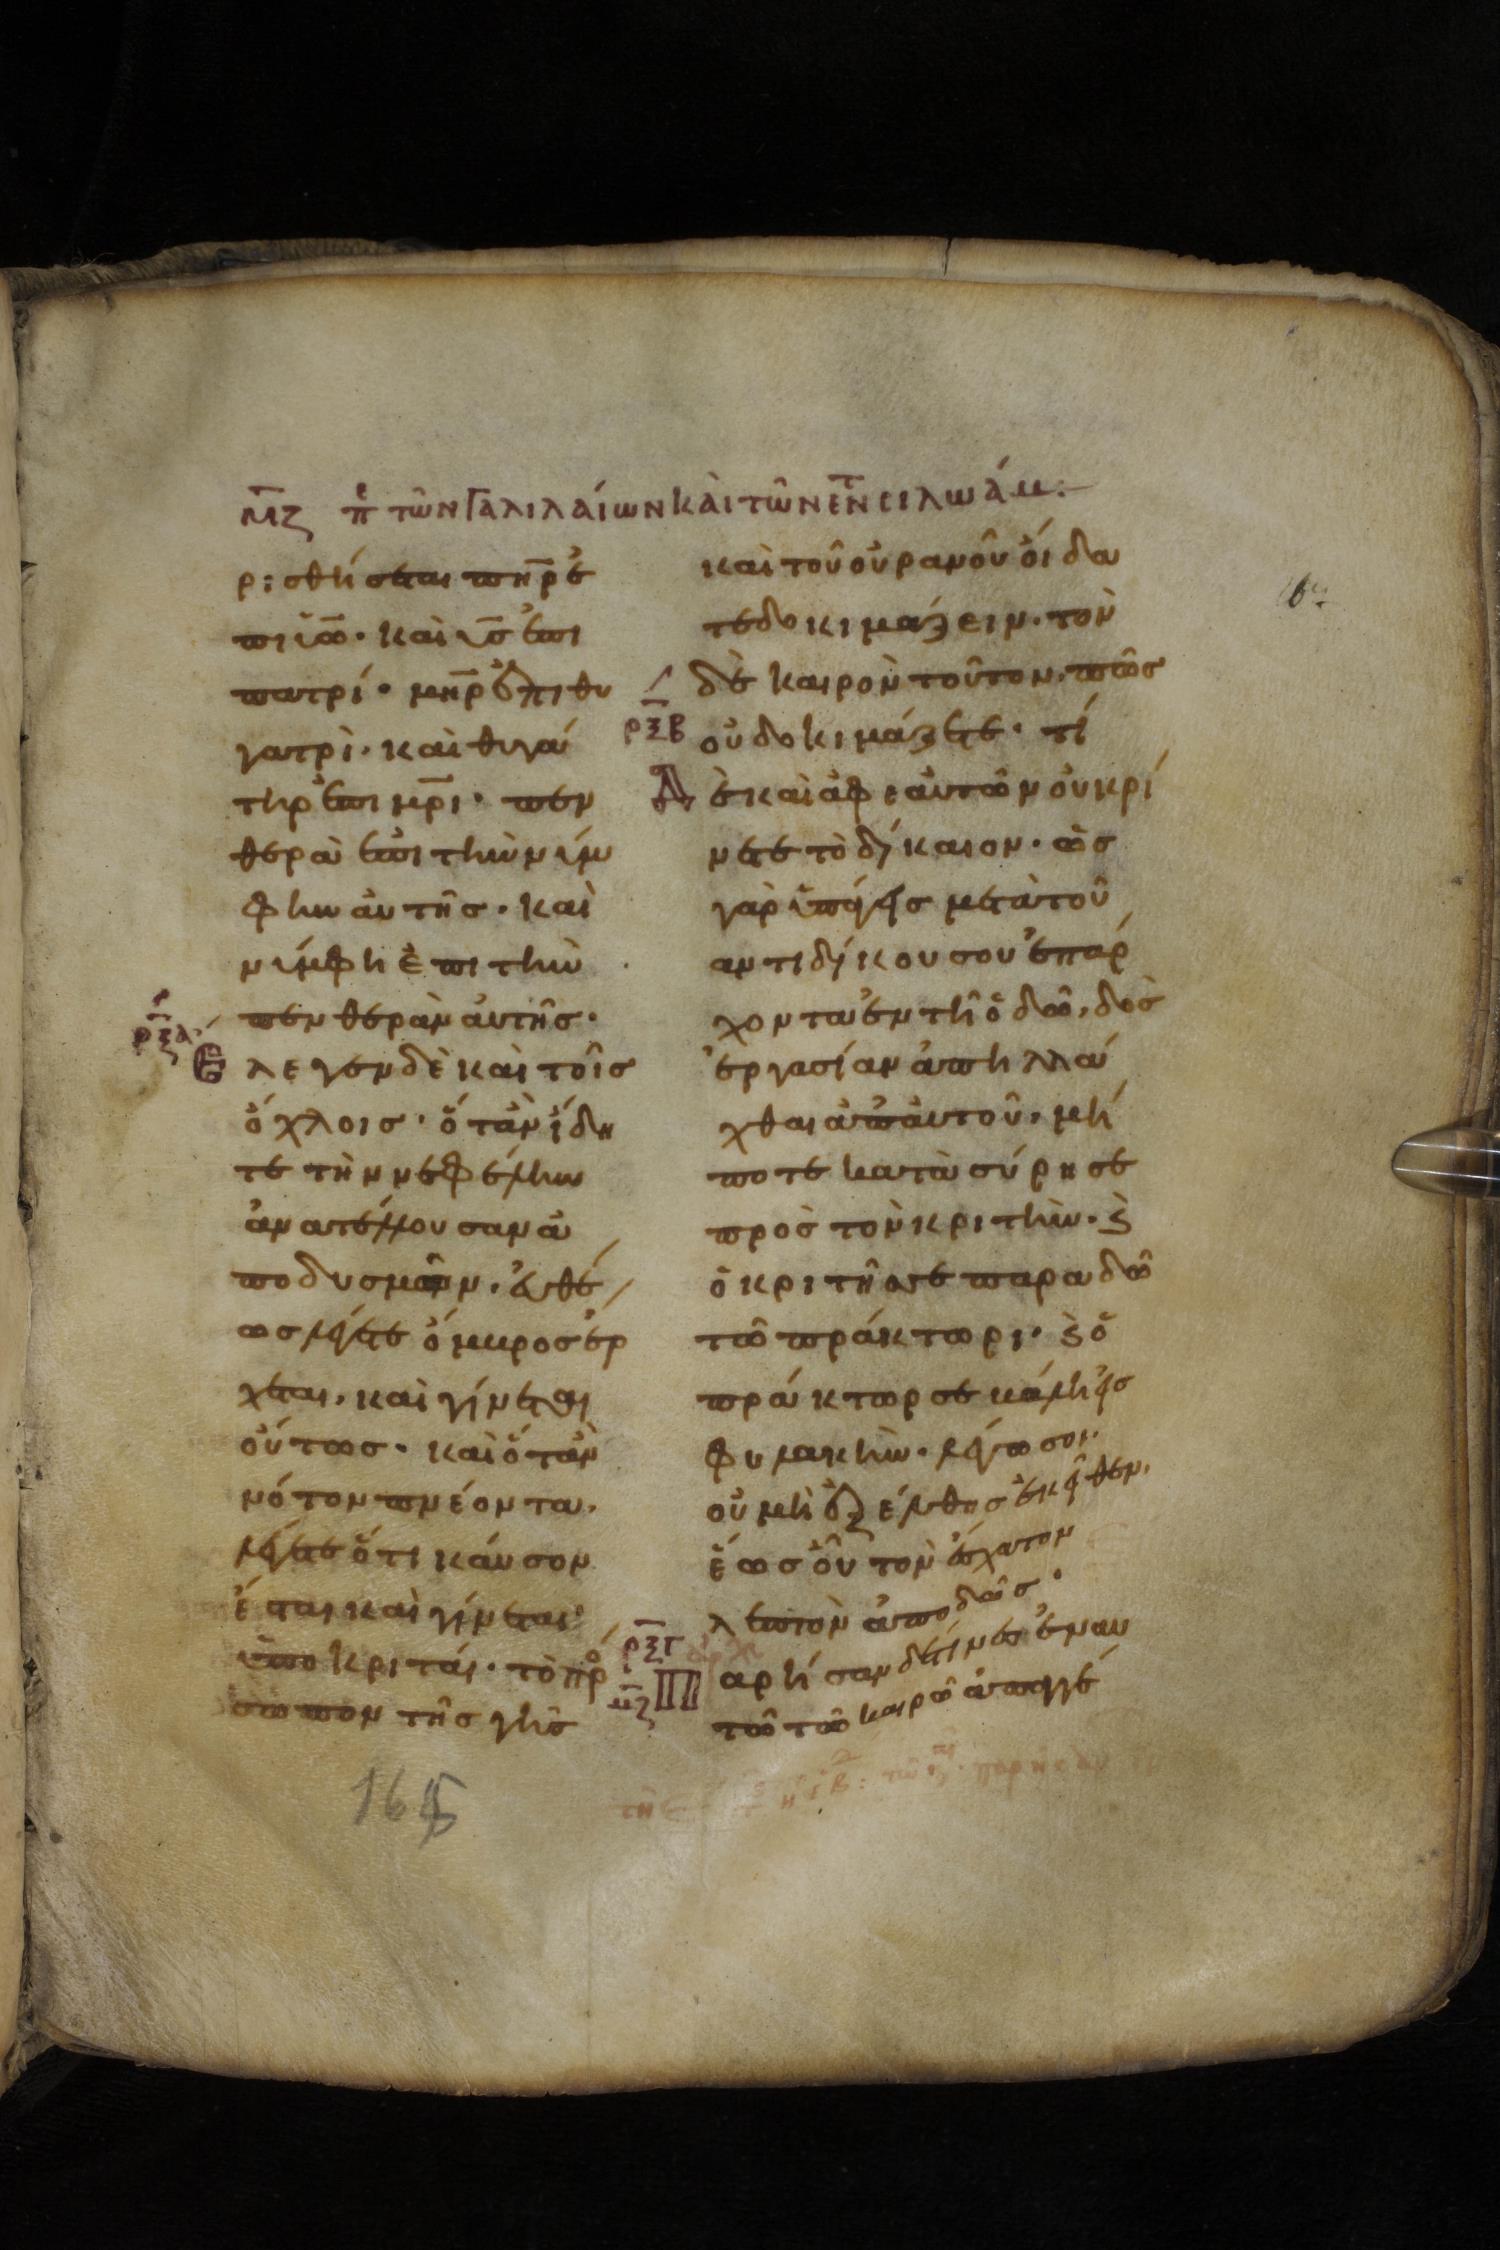 μζ π̅ε̅ τῶν Γαλιλαίων καὶ τῶν ἐν τ̅ Σιλωάμ:
ρισθήσεται πη̅ρ ἐ
πι ϋω̅· καὶ υ̅σ ἐπι
πατρί· μη̅ρ ἐπι θυ
γατρὶ· καὶ θυγά
τηρ ἐπι μρ̅ι· πεν
θερὰ ἐπι τὴν νύμ
φην αὐτῆς· καὶ
νύμφη ἐπι τὴν
πενθερὰν αὐτῆς·
ρξα
Ελεγεν δὲ καὶ τοῖς
ὄχλοις· ὅταν ἴδη
τε τὴν νεφέλην
ἀνατέλλουσαν ἀ
πο δυσμῶν· εὐθέ
ως λέγετε ὄμβρος ἔρ
χεται, καὶ γίνεται
οὕτως· καὶ ὅταν
νότον πνέοντα,
λέγετε ὅτι καύσων
ἔσται καὶ γίνεται·
ὑποκριταί· τὸ πρό
σωπον τῆς γῆς
καὶ τοῦ οὐρανοῦ οἴδα
τε δοκιμάζειν· τὸν
δὲ καιρὸν τοῦτον, πῶς
ρξβ
οὐ δοκιμάζετε· τί
δὲ καὶ ἀφ ἑαυτῶν οὐ κρί
νετε τὸ δίκαιον· ὡς
γὰρ ὑπάγεις μετὰ τοῦ
αντιδίκου σου ἐπ ἄρ
χοντα ἐν τῆ ὁδῶ, δὸς
ἐργασίαν ἀπηλλά
χθαι ἀπ αὐτοῦ, μή
ποτε κατασύρη σε
πρὸς τὸν κριτήν· ϗ
ὁ κριτῆς σε παραδῶ
τῶ πράκτωρι· ϗ ὁ
πράκτωρ σε βάλη εἰς
φυλακὴν· λέγω σοι·
οὐ μὴ ἐξέλθης ἐκεῖθεν,
ἕως οὗ τὸν ἔσχατον
λεπτὸν ἀποδῶς·
ρξγ
μζ
Παρῆσαν δέ τινες ἐν αυ
τῶ τῶ καιρῶ ἀπαγγέ
165